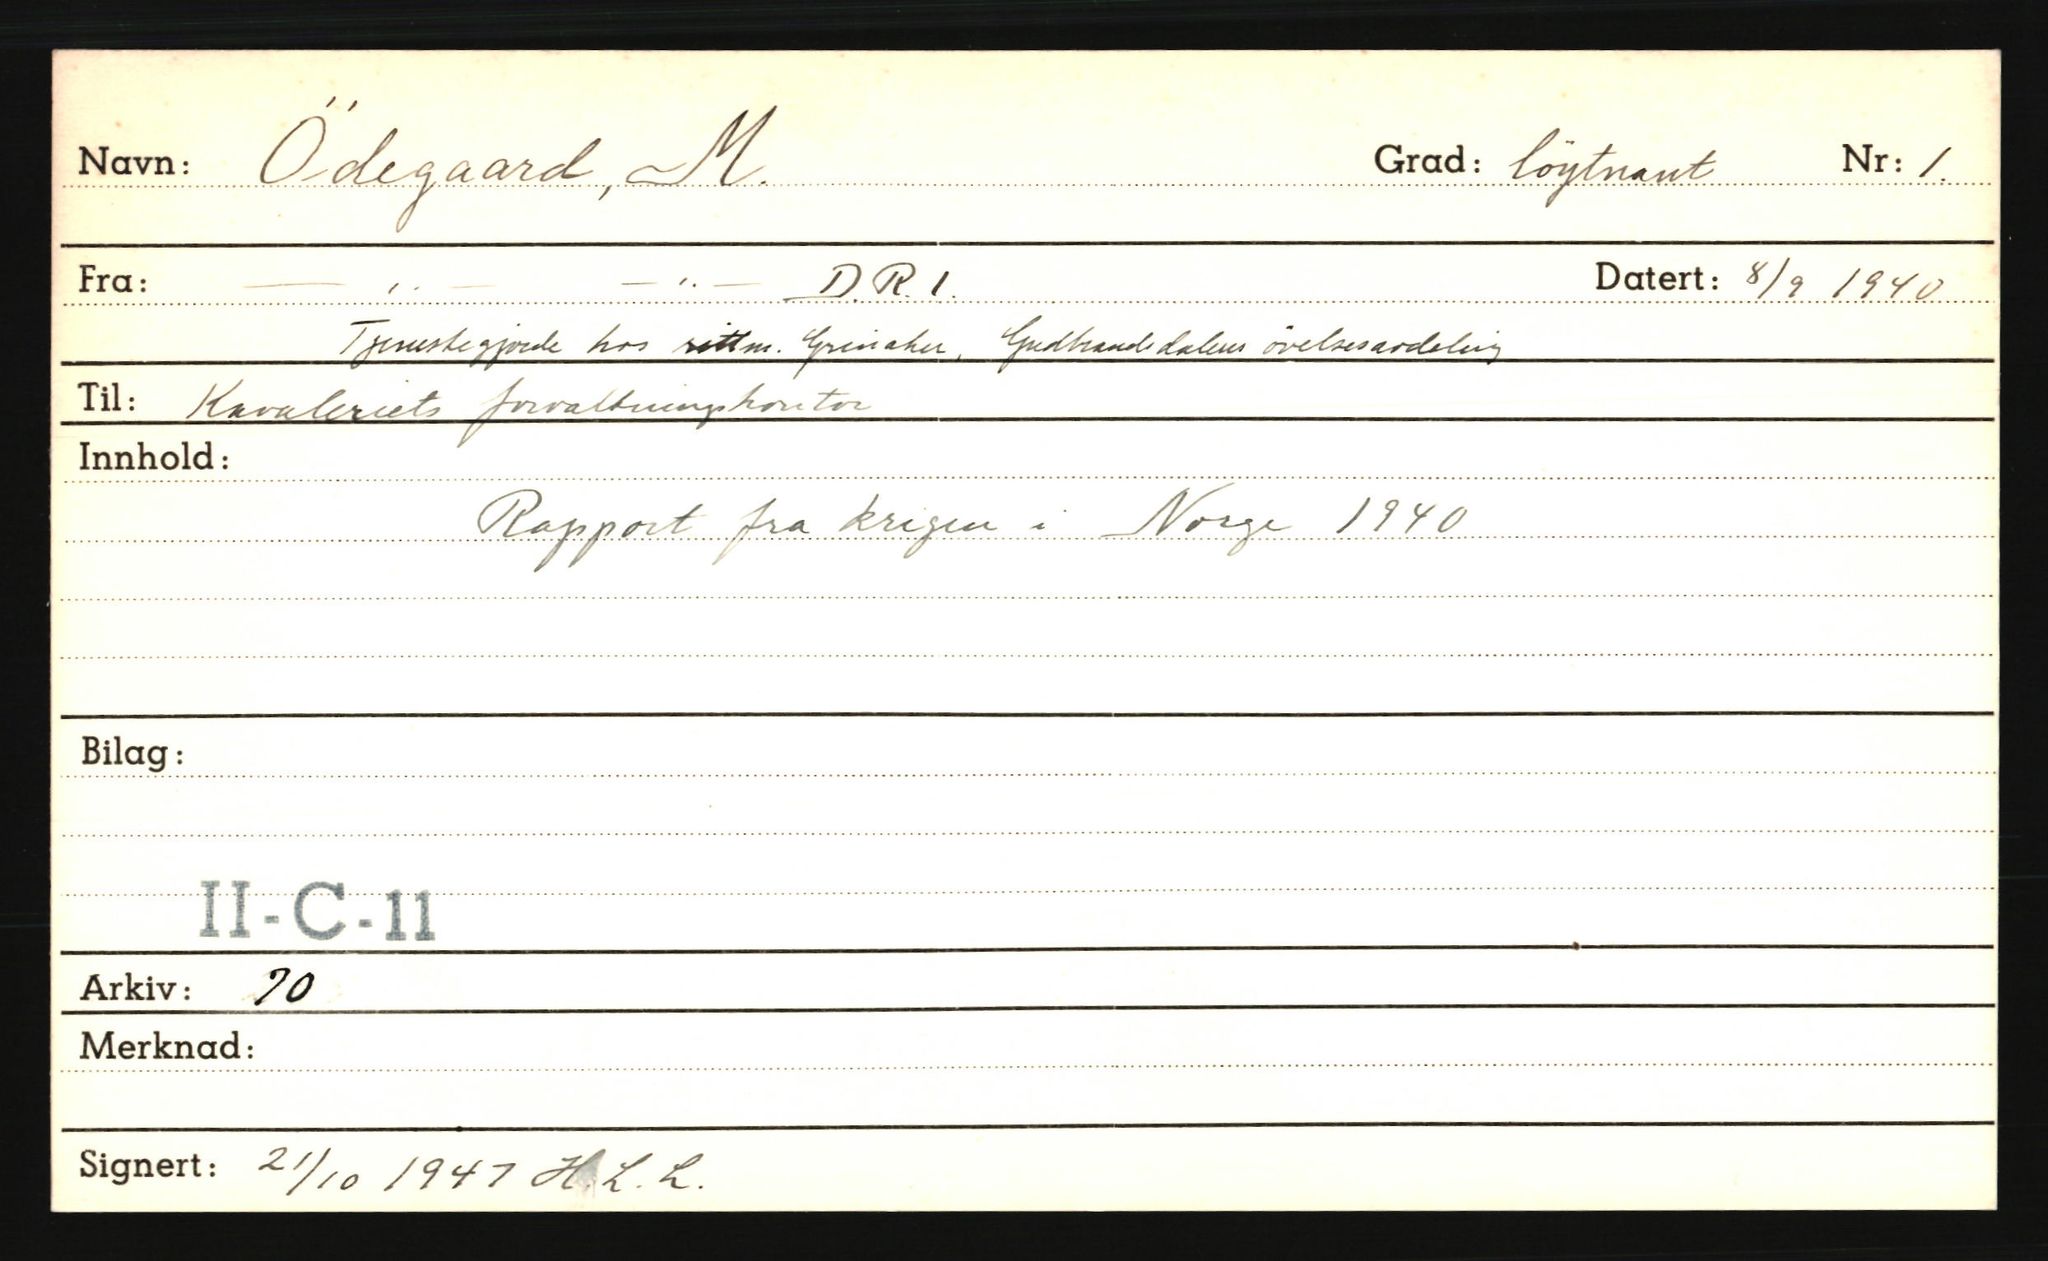 Navn: Ödegaard, M. Grad: löytnant Nr: 1.
Fra: — " — — " — D.R.1. Datert: 8/9 1940
Tjenestegjorde hos rittm. Grinaker, Gudbrandsdalens övelsesavdeling
Til: Kavaleriets forvaltningskontor
Innhold:
Rapport fra krigen i Norge 1940
Bilag:
II-C-11
Arkiv: 70
Merknad:
Signert: 21/10 1947 H.L.L.